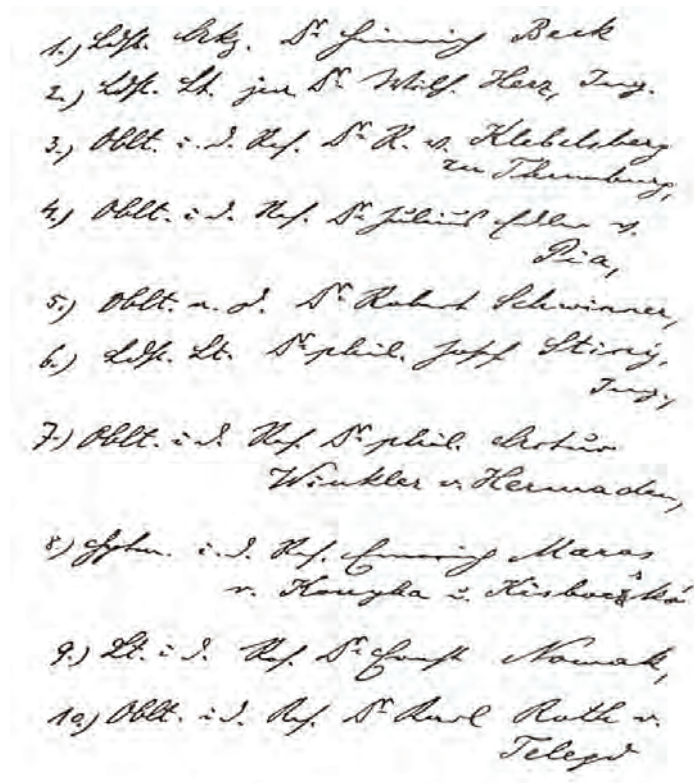 1.) Ldst. Arzt. Dr Beck
2.) Ldst. Lt. jur Dr Wilf. Herz, Ing.
3.) Oblt. i. d. Res. Dr R. v. Klebelsberg
zu Thumburg,
4.) Oblt. i. d. Res. Dr Julius Edler v.
Pia,
5.) Oblt. a. d. Dr Robert Schwinner,
6.) Ldst. Lt. Dr phil. Josef Stiny,
Ing.,
7.) Oblt. i. d. Res. Dr phil. Artur
Winkler v. Hermaden,
8.) i. d. Res. Maros
v. Konyha u. Kisbocskó
9.) Lt. i. d. Res. Dr Ernst Nowak,
10.) Oblt. i. d. Res. Dr Karl Roth v.
Telegd